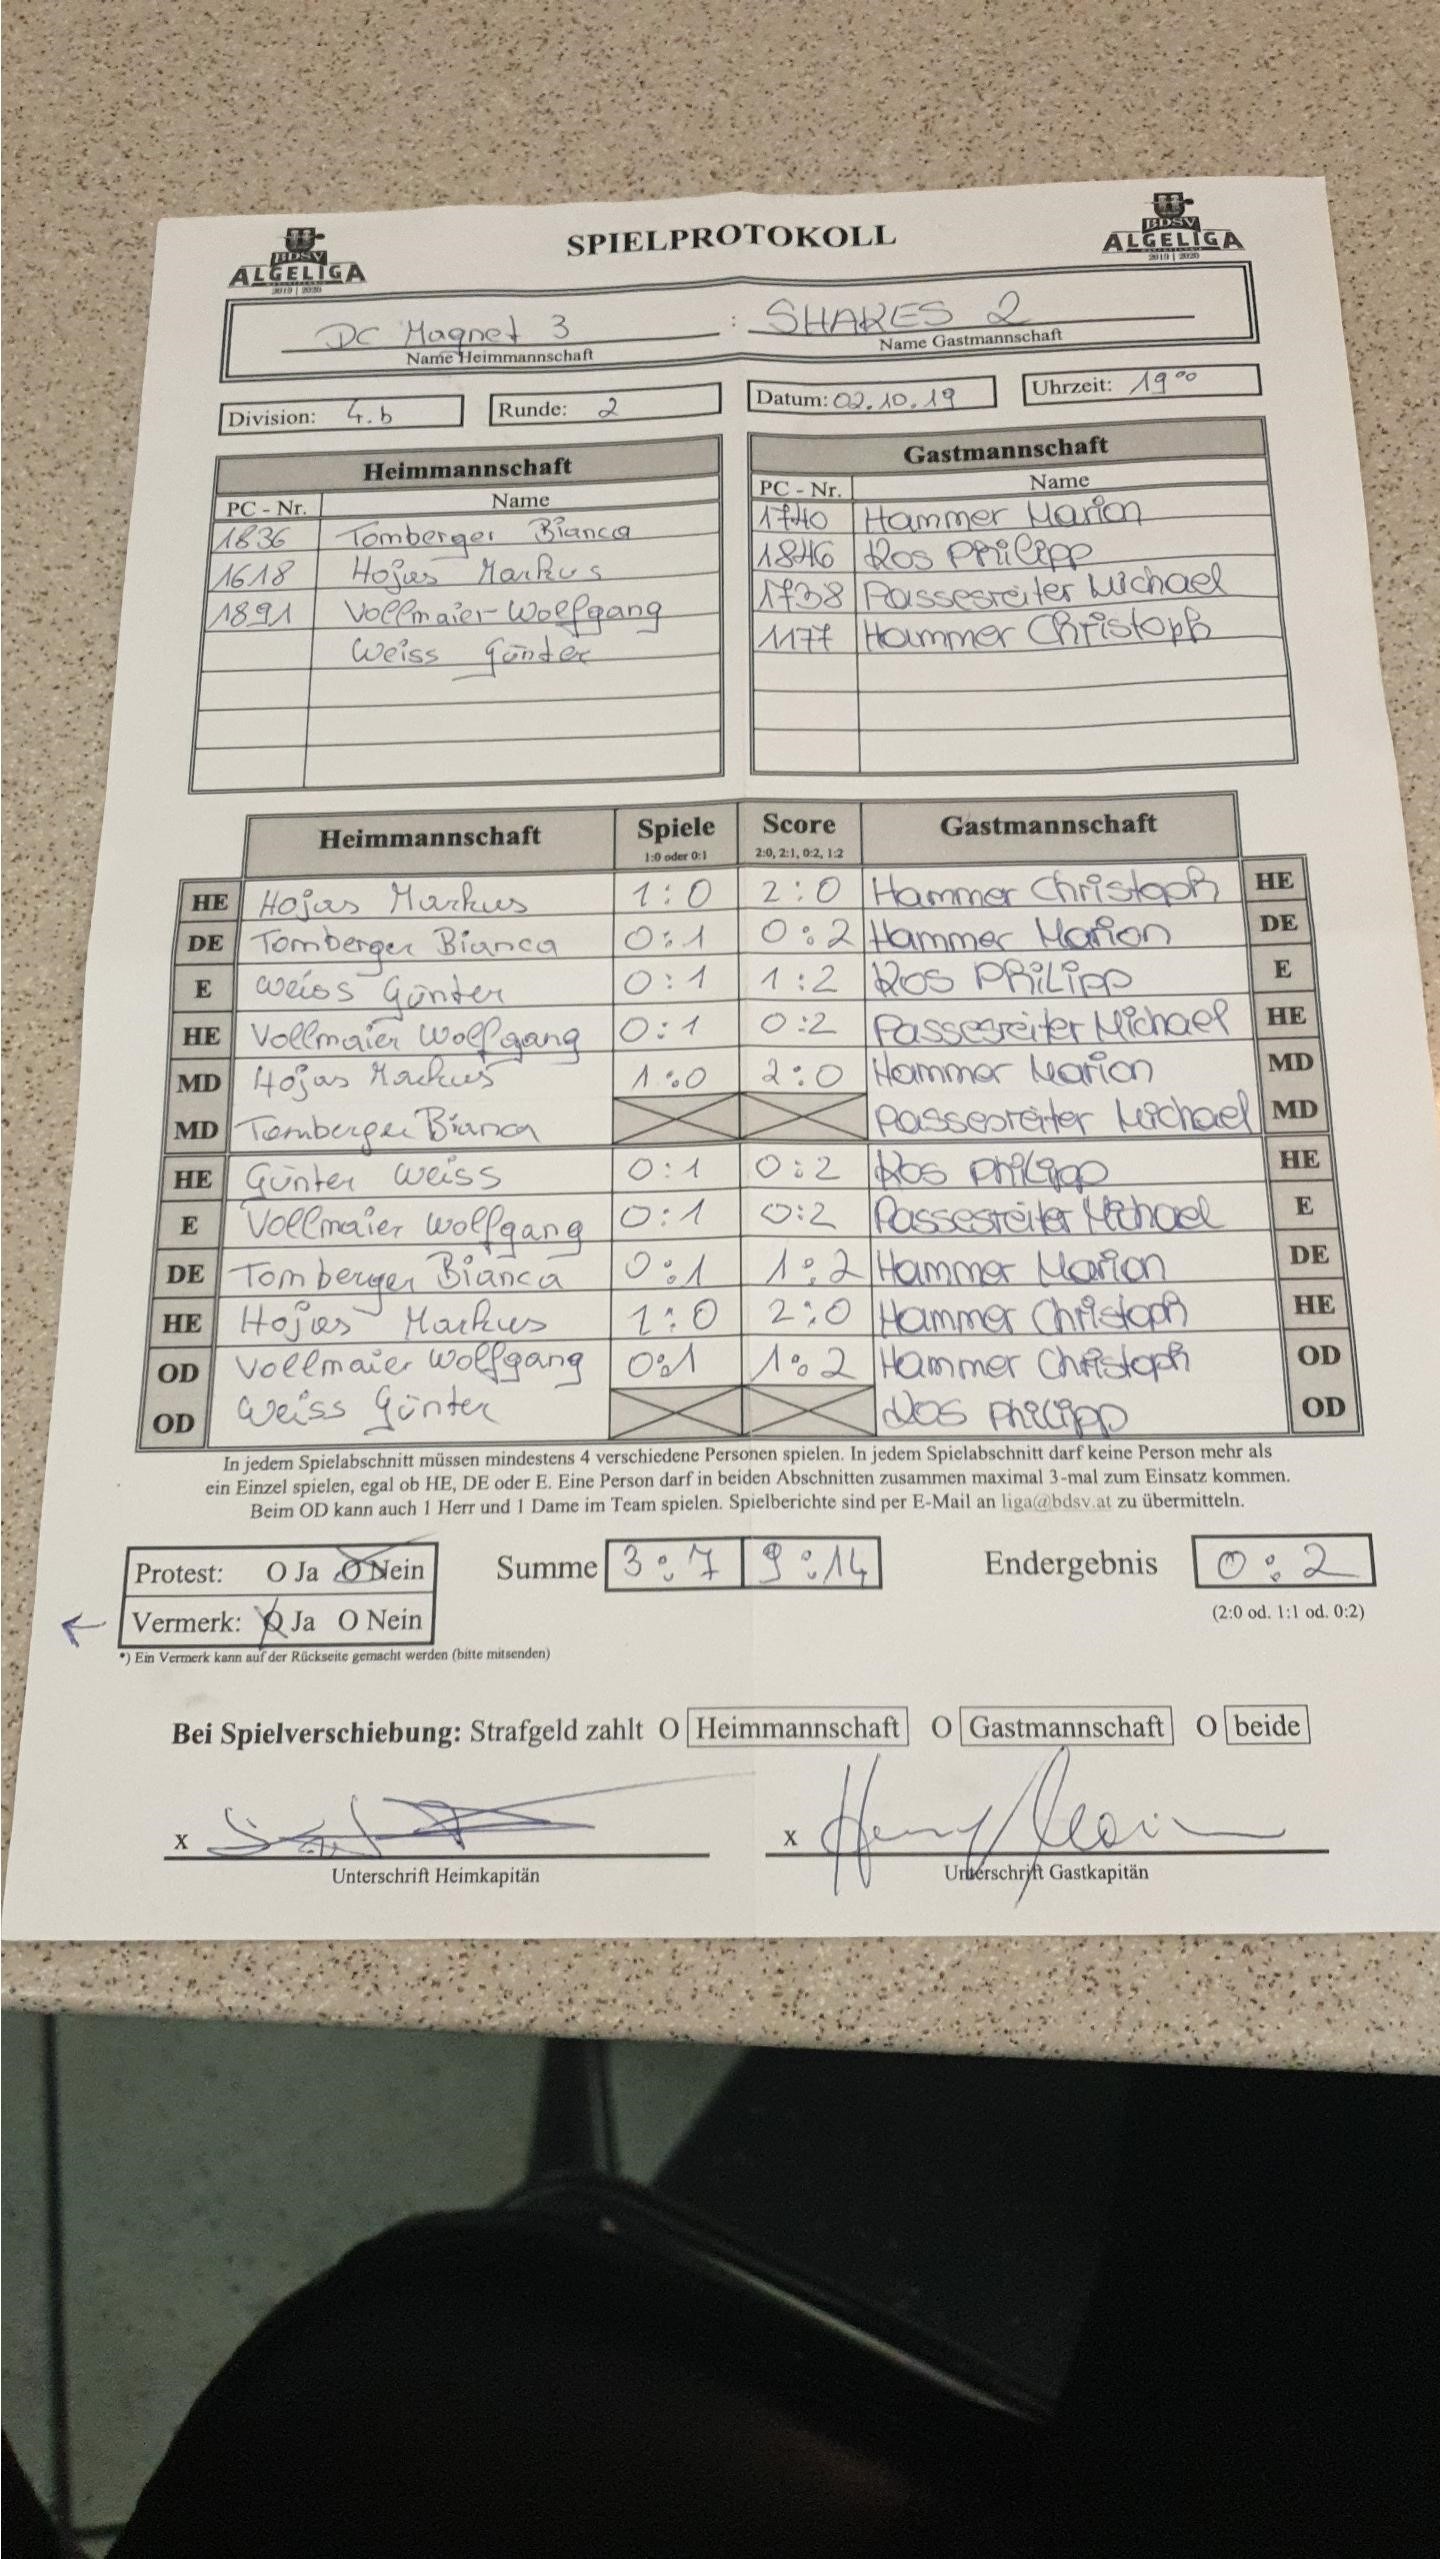 BDSV
ALGELIGA
2019 | 2020
SPIELPROTOKOLL
BDSV
ALGELIGA
2019 | 2020
DC Magnet 3 : SHAKES 2
Name Heimmannschaft Name Gastmannschaft
Division: 4.b Runde: 2 Datum: 02.10.19 Uhrzeit: 19⁰⁰
Heimmannschaft Gastmannschaft
PC - Nr. Name PC - Nr. Name
1836 Tomberger Bianca 1740 Hammer Marion
1618 Hojas Markus 1846 Kos Philipp
1891 Vollmaier Wolfgang 1738 Passesreiter Michael
Weiss Günter 1177 Hammer Christoph
Heimmannschaft Spiele Score Gastmannschaft
1:0 oder 0:1 2:0, 2:1, 0:2, 1:2
HE Hojas Markus 1:0 2:0 Hammer Christoph HE
DE Tomberger Bianca 0:1 0:2 Hammer Marion DE
E Weiss Günter 0:1 1:2 Kos Philipp E
HE Vollmaier Wolfgang 0:1 0:2 Passesreiter Michael HE
MD Hojas Markus 1:0 2:0 Hammer Marion MD
MD Tomberger Bianca Passesreiter Michael MD
HE Günter Weiss 0:1 0:2 Kos Philipp HE
E Vollmaier Wolfgang 0:1 0:2 Passesreiter Michael E
DE Tomberger Bianca 0:1 1:2 Hammer Marion DE
HE Hojas Markus 1:0 2:0 Hammer Christoph HE
OD Vollmaier Wolfgang 0:1 1:2 Hammer Christoph OD
OD Weiss Günter Kos Philipp OD
In jedem Spielabschnitt müssen mindestens 4 verschiedene Personen spielen. In jedem Spielabschnitt darf keine Person mehr als
ein Einzel spielen, egal ob HE, DE oder E. Eine Person darf in beiden Abschnitten zusammen maximal 3-mal zum Einsatz kommen.
Beim OD kann auch 1 Herr und 1 Dame im Team spielen. Spielberichte sind per E-Mail an liga@bdsv.at zu übermitteln.
Protest: O Ja O Nein Summe 3:7 9:14 Endergebnis 0:2
Vermerk: O Ja O Nein (2:0 od. 1:1 od. 0:2)
*) Ein Vermerk kann auf der Rückseite gemacht werden (bitte mitsenden)
Bei Spielverschiebung: Strafgeld zahlt O Heimmannschaft O Gastmannschaft O beide
x x
Unterschrift Heimkapitän Unterschrift Gastkapitän